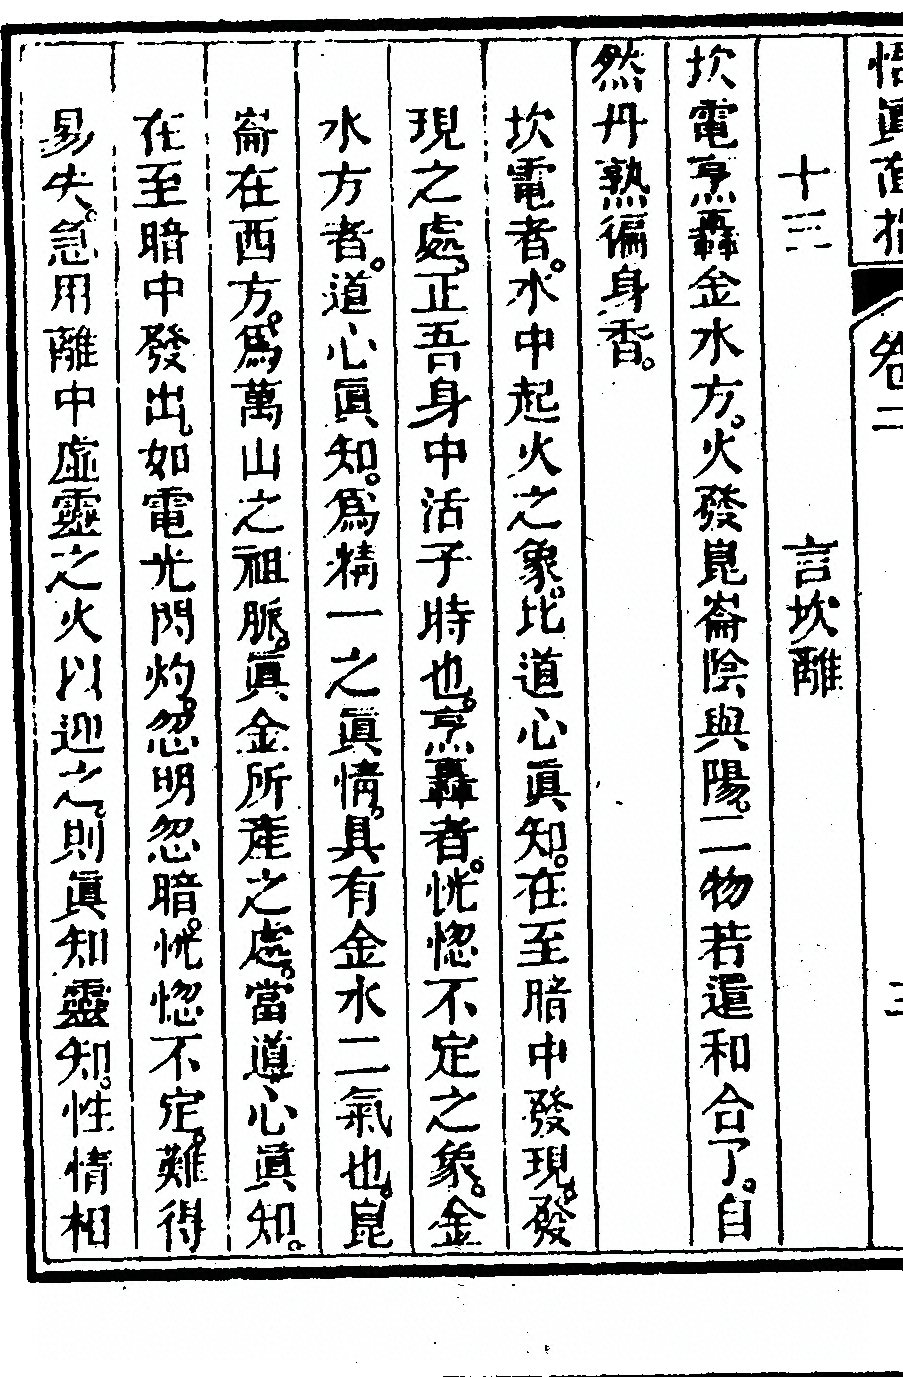 悟真直指 卷二 三
十三 言坎離
坎電烹轟金水方。火發崑崙陰與陽。二物若還和合了。自
然丹熟徧身香。
坎電者。水中起火之象。比道心眞知。在至暗中發現。發
現之處。正吾身中活子時也。烹轟者。恍惚不定之象。金
水方者。道心眞知。爲精一之眞情。具有金水二氣也。崑
崙在西方。爲萬山之祖脈。眞金所產之處。當道心眞知。
在至暗中發出。如電光閃灼。忽明忽暗。恍惚不定。難得
易失。急用離中虛靈之火以迎之。則眞知靈知。性情相